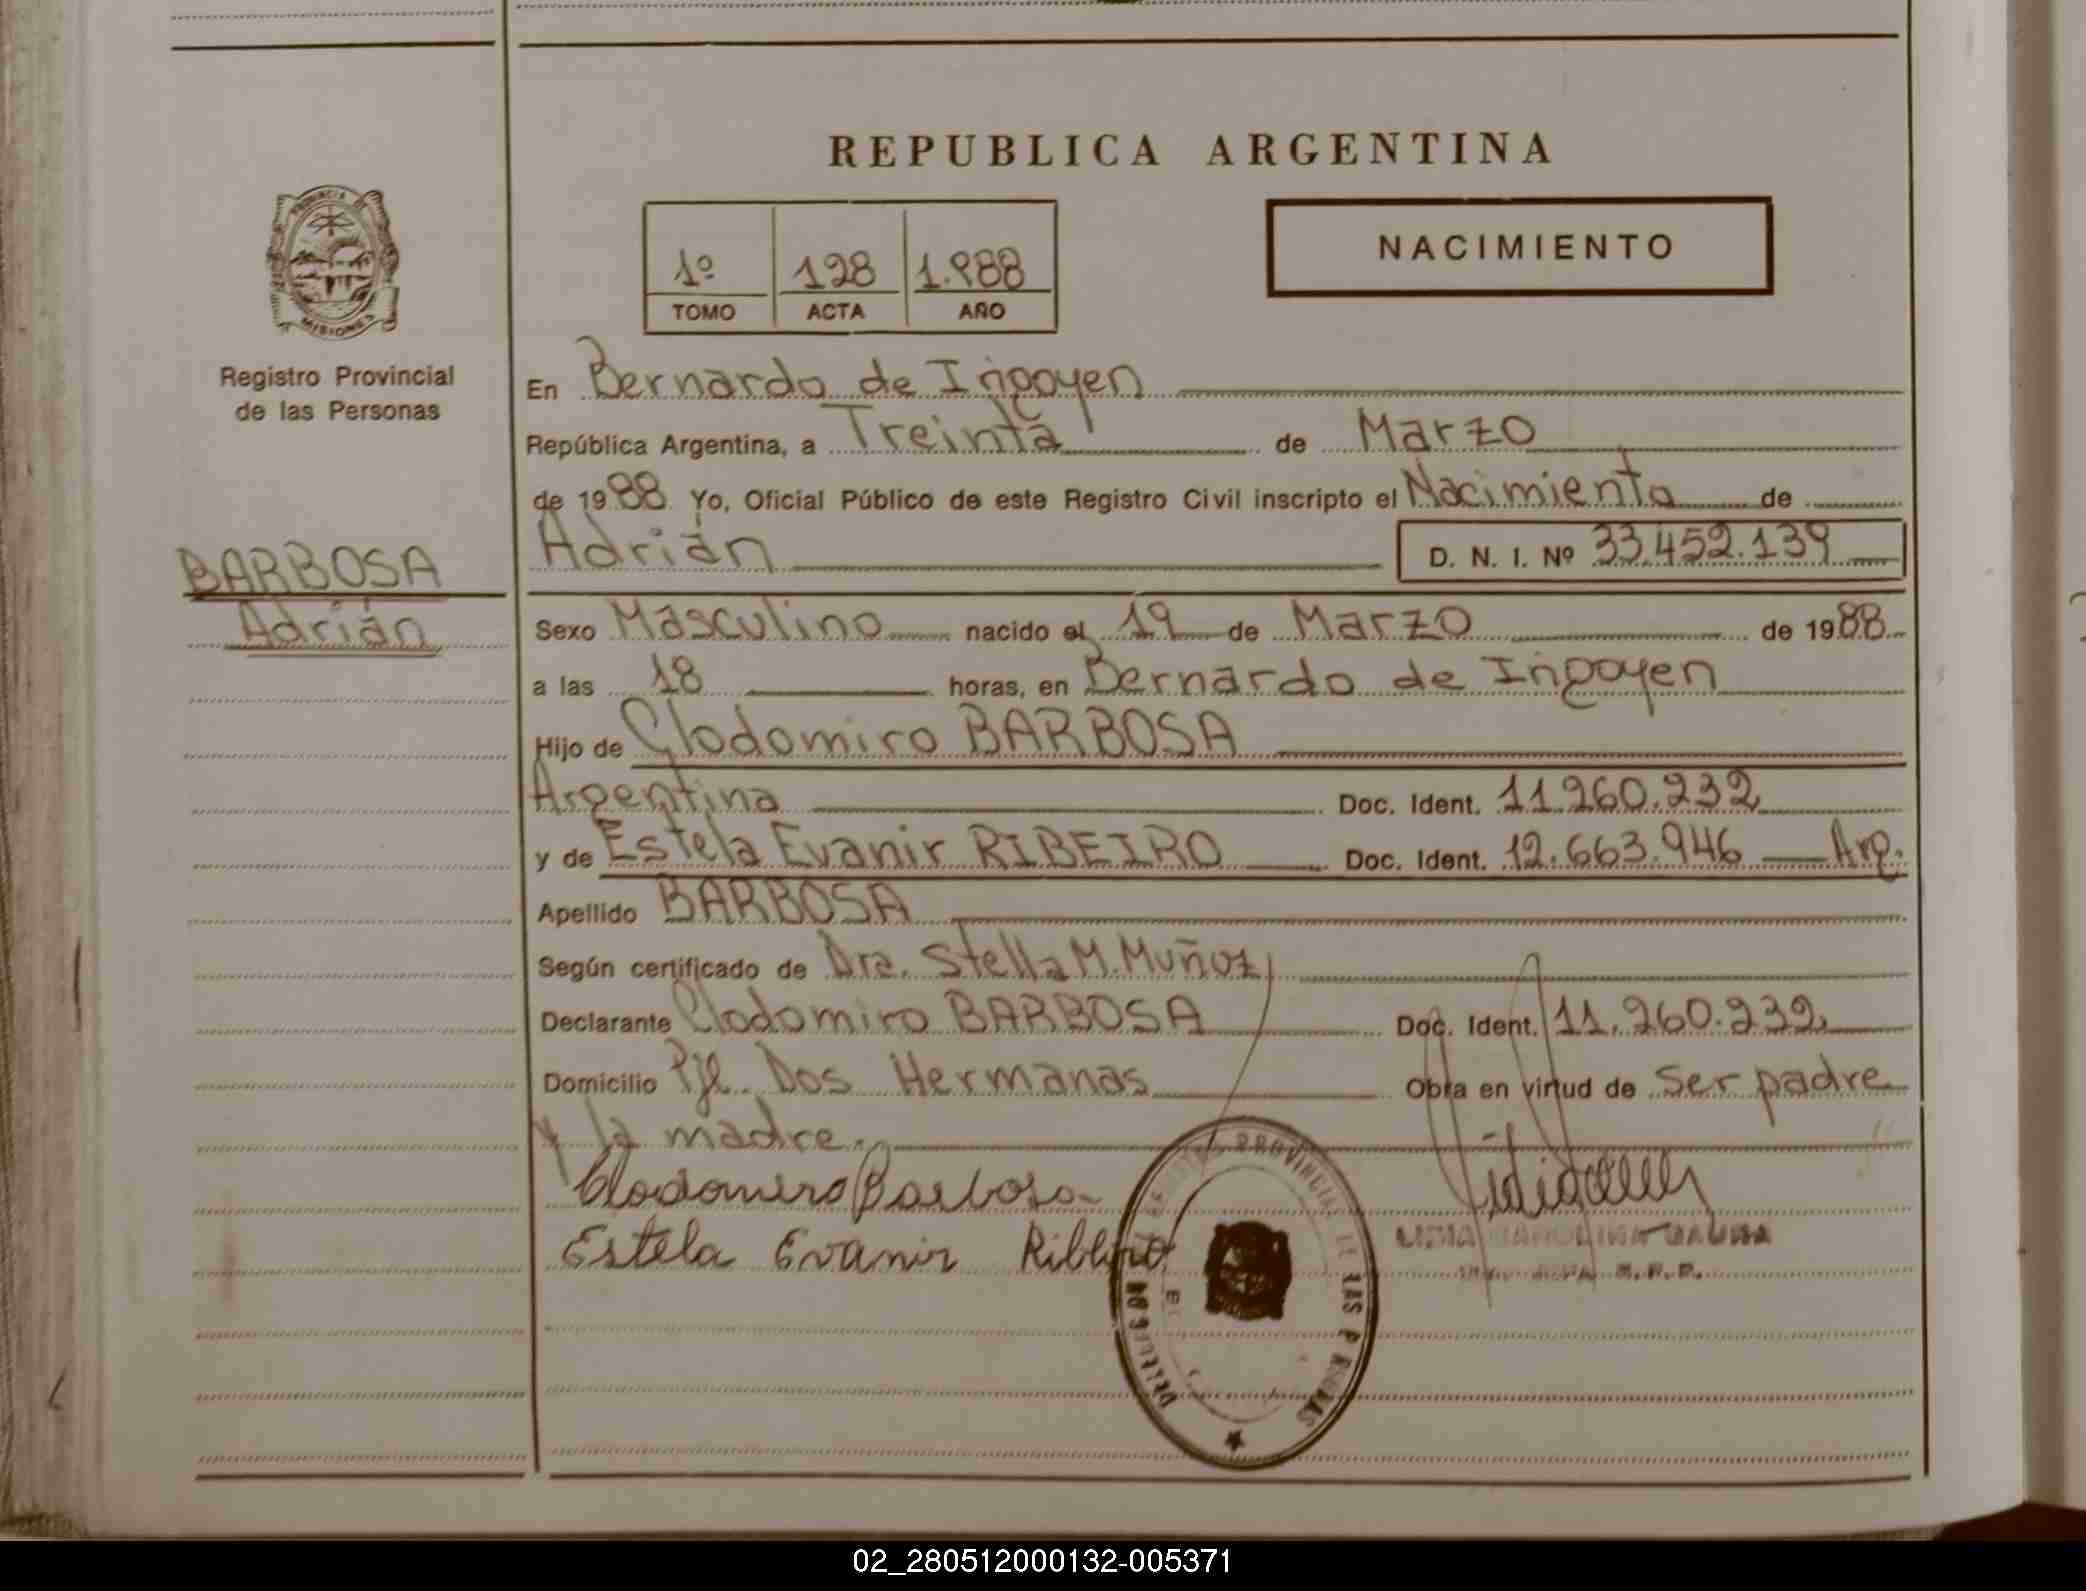 REPUBLICA ARGENTINA
1º 128 1.988
TOMO ACTA AÑO
NACIMIENTO
PROVINCIA
MISIONES
Registro Provincial
de las Personas
BARBOSA
Adrián
En Bernardo de Irigoyen
República Argentina, a Treinta de Marzo
de 1988 Yo, Oficial Público de este Registro Civil inscripto el Nacimiento de
Adrián D. N. I. Nº 33.452.139
Sexo Masculino nacido el 19 de Marzo de 1988
a las 18 horas, en Bernardo de Irigoyen
Hijo de Clodomiro BARBOSA
Argentina Doc. Ident. 11.260.232
y de Estela Evanir RIBEIRO Doc. Ident. 12.663.946 Arg.
Apellido BARBOSA
Según certificado de Dra. Stella M. Muñoz
Declarante Clodomiro BARBOSA Doc. Ident. 11.260.232
Domicilio Pje. Dos Hermanas Obra en virtud de ser padre
y la madre.
Clodomiro Barbosa
Estela Evanir Ribeiro
PROVINCIAL DE LAS PERSONAS
02_280512000132-005371